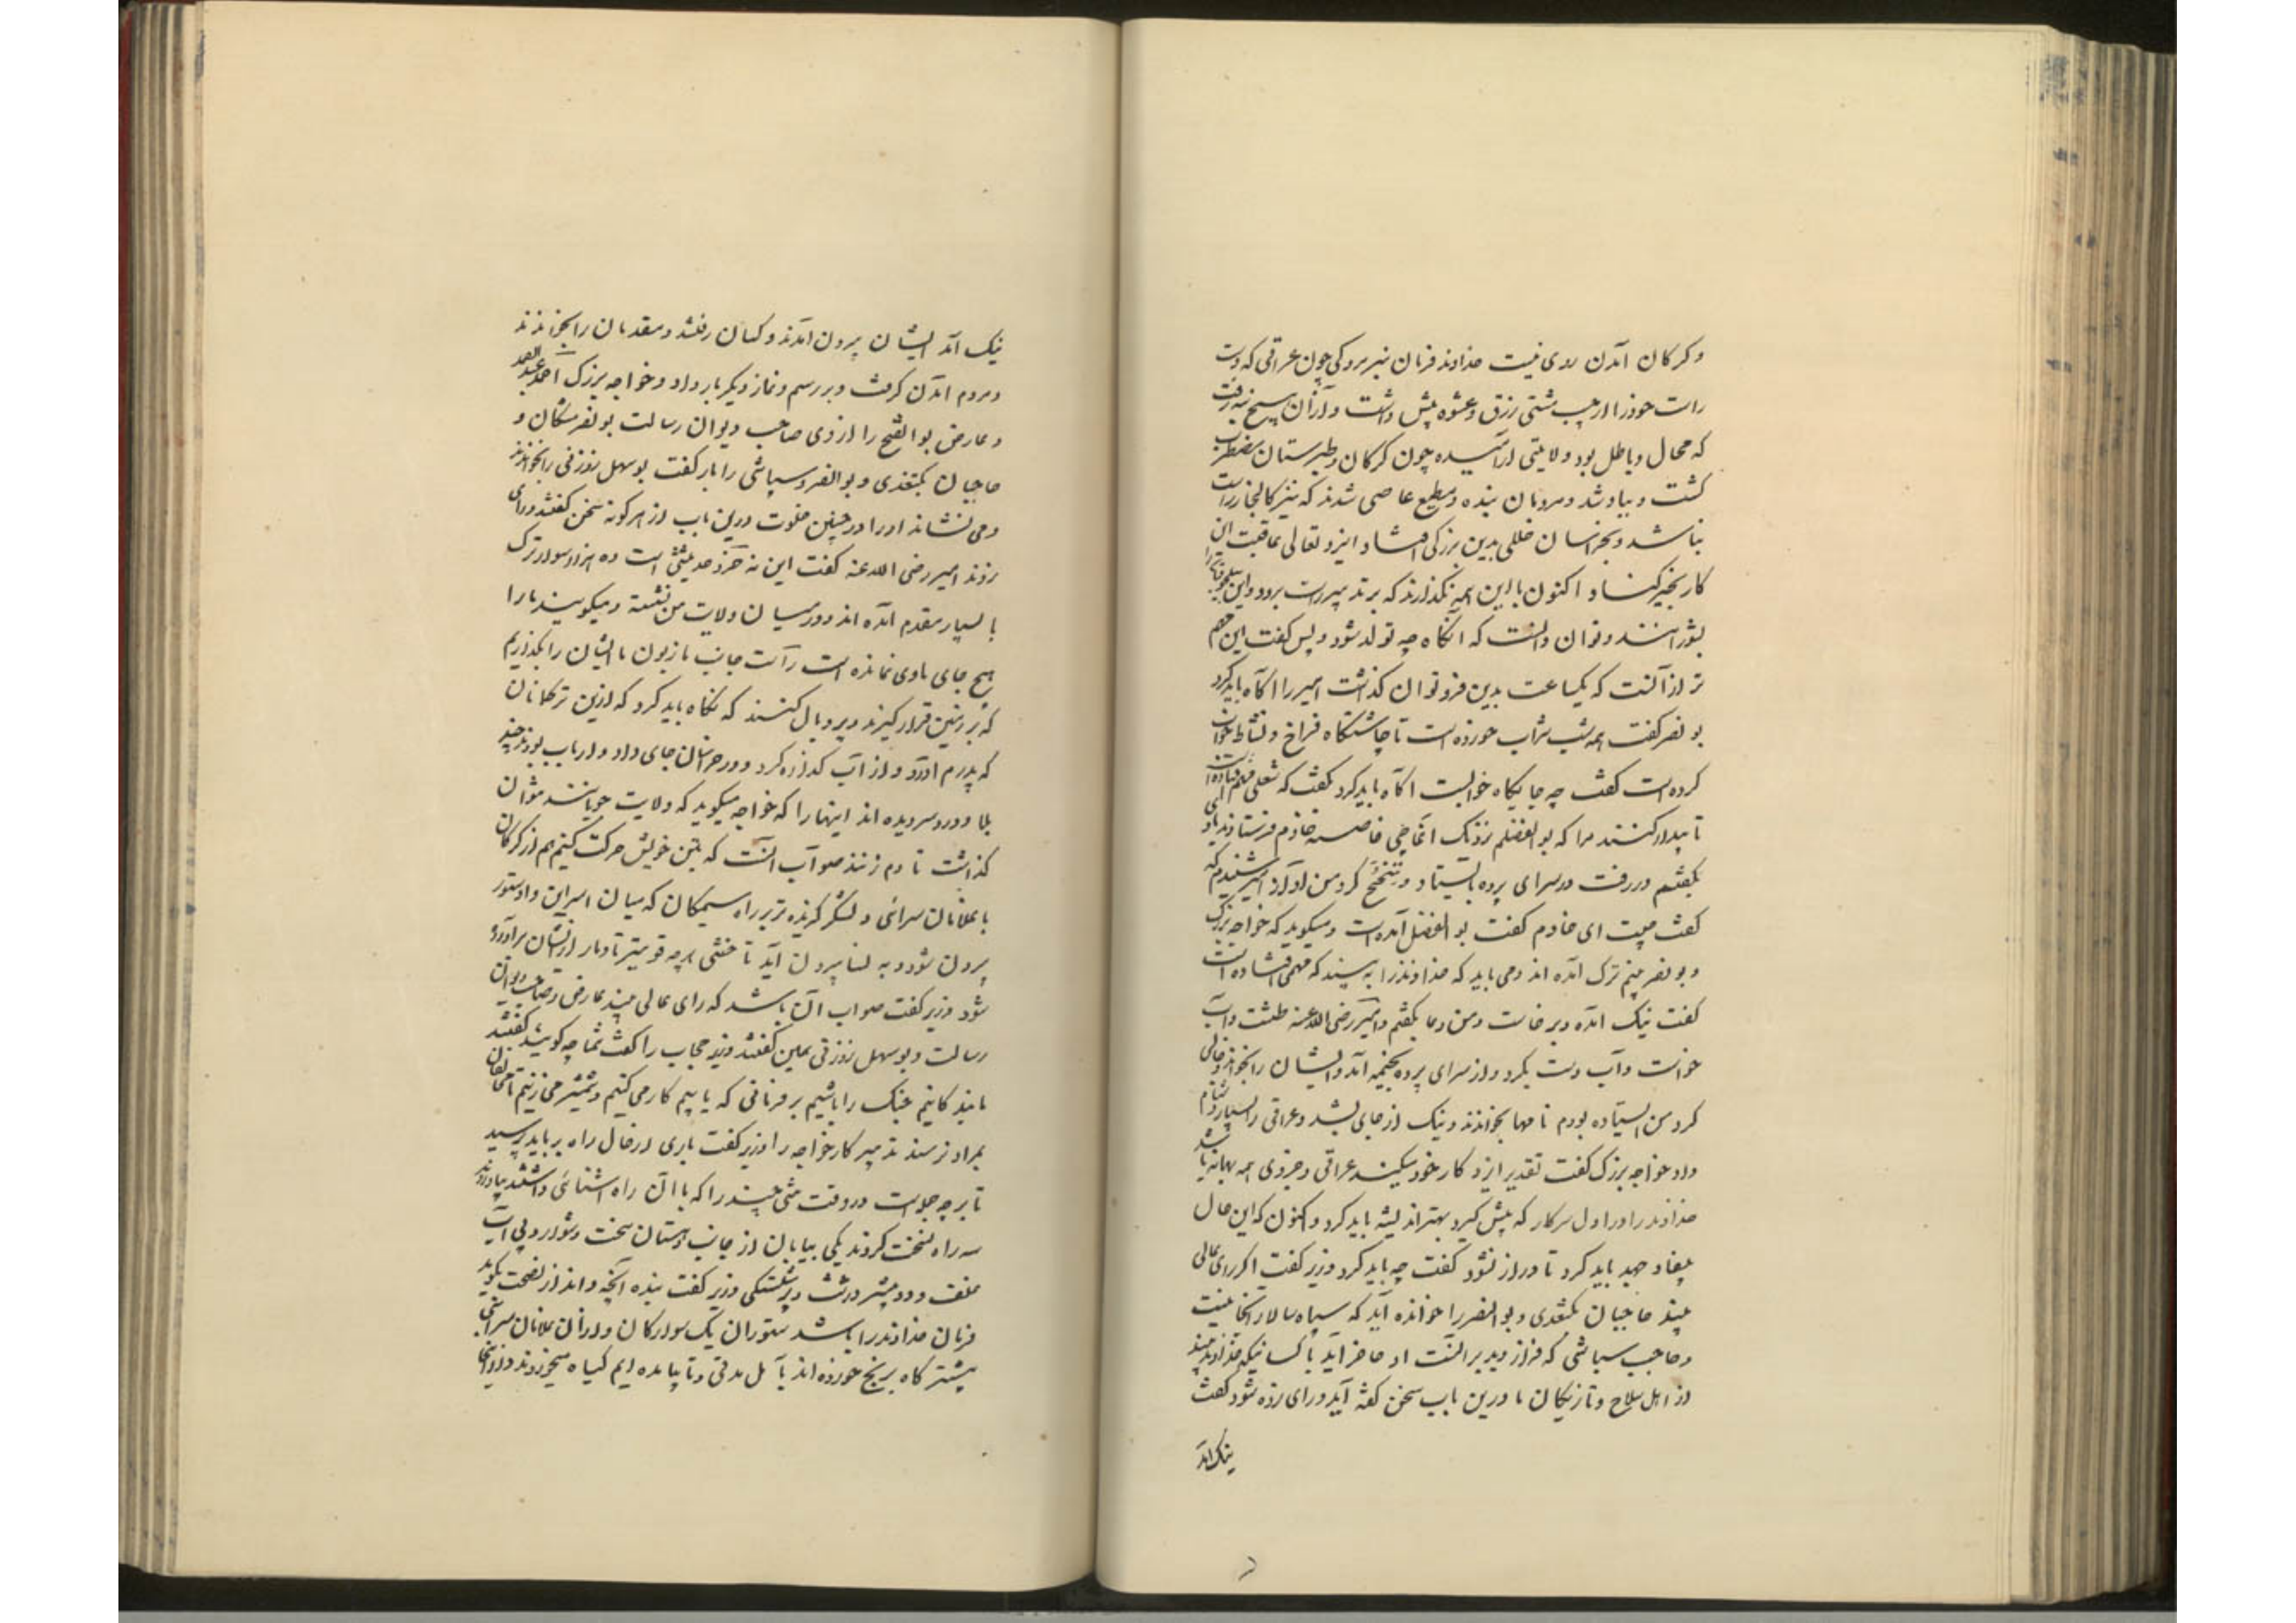 و کرکان آمدن روی نیست خداوند فرمان نبرد و کی چون عراقی که دست
راست خود از چپ مشتی زرق و عشوه پیش داشت و از آن هیچ نرفت
که محال و باطل بود ولایتی آرامیده چون کرکان و طبرستان مضطرب
کشت و بباد شد و مردمان بنده و مطیع عاصی شدند که نیز کالنجار راست
نباشد و بخراسان خللی بدین بزرکی افتاد ایزد تعالی عاقبت این
کار بخیر کناد و اکنون با این همه نکذارند که بر تدبیر راست برود و این سلجوقیانرا
بشورانند و توان دانست که آنکاه چه تولد شود و پس کفت این مهم
تر از آنست که یکساعت بدین فرو توان کذاشت امیر را آکاه باید کرد
بو نصر کفت همه شب شراب خورده است تا چاشتکاه فراخ و نشاط خواب
کرده است کفت چه جایکاه خوابست آکاه باید کرد کفت که شغلی مهم افتاده است
تا بیدار کنند مرا که بوالفضلم نزدیک آغاجی خاصه خادم فرستادند با وی
بکفتم در رفت در سرای پرده بایستاد و تنحنح کرد من آواز امیر شنیدم که
کفت چیست ای خادم کفت بوالفضل آمده است و میکوید که خواجه بزرک
و بو نصر نیم ترک آمده اند و می باید که خداوند را به بینند که مهمی افتاده است
کفت نیک آمده و برخاست و من دعا بکفتم و امیر رضی الله عنه طشت و آب
خواست و آب دست بکرد و از سرای پرده بخیمه آمد و ایشان را بخواند و خالی
کرد من ایستاده بودم نامها بخواندند و نیک از جای بشد و عراقی را بسیار دشنام
داد خواجه بزرک کفت تقدیر ایزد کار خود میکند عراقی و جز وی همه بهانه باشد
خداوند را در اول هر کار که پیش کیرد بهتر اندیشه باید کرد و اکنون که این حال
بیفتاد جهد باید کرد تا دراز نشود کفت چه باید کرد وزیر کفت اکر رای عالی
بیند حاجبان بکتغدی و بوالنصر را خوانده آید که سپاه سالار اینجا نیست
و حاجب سباشی که فراز دیدبر آنست او حاضر آید با کسانیکه خداوند بیند
از اهل سلاح و تازیکان تا درین باب سخن کفته آید و رای زده شود کفت
نیک آمد
نیک آمد ایشان بیرون آمدند و کسان رفتند و مقدمان را بخواندند
و مردم آمدن کرفت و بر رسم و نماز دیکر بار داد و خواجه بزرک احمد عبدالصمد
و عارض بوالفتح رازی و صاحب دیوان رسالت بو نصر مشکان و
حاجبان بکتغدی و بوالنصر و سباشی را باز کفت بوسهل زوزنی را بخواندند
و می نشاند او را در چنین خلوت درین باب از هر کونه سخن کفتند و رای
زدند امیر رضی الله عنه کفت این نه خرد حدیثی است ده هزار سوار ترک
با بسیار مقدم آمده اند و در میان ولایت من نشسته و میکویند ما را
هیچ جای ماوی نمانده است راست جانب ما زبون ما ایشان را نکذاریم
که بر زمین قرار کیرند و پر و بال کنند که نکاه باید کرد که ازین ترکمانان
که پدرم آورد و از آب کذاره کرد و در خراسان جای داد و ارباب بودند چند
بلا و درد سر دیده اند اینها را که خواجه میکوید که ولایت جویانند نتوان
کذاشت تا دم زنند صواب آنست که بتن خویش حرکت کنیم هم از کرکان
با غلامان سرائی و لشکر کزیده تر بر راه سمنکان که میان اسپراین و استوا
بیرون شود و به نسا بیرون آید تا ختنی هر چه قویتر تا دمار از ایشان برآورده
شود وزیر کفت صواب آن باشد که رای عالی بیند عارض و صاحب دیوان
رسالت و بوسهل زوزنی همین کفتند وزیر حجاب را کفت شما چه کویید کفتند
ما بندکانیم جنک را باشیم بر فرمانی که یابیم کار می کنیم و شمشیر می زنیم تا مخالفان
بمراد نرسند تدبیر کار خواجه را وزیر کفت باری از حال راه بر باید پرسید
تا بر چه جملست در وقت تنی چند را که با آن راه آشنائی داشتند بیاوردند
سه راه نسخت کردند یکی بیابان از جانب دهستان سخت دشوار و بی آب
و علف و دو بیشتر درشت و پر شکستکی وزیر کفت بنده آنچه داند از نصیحت بکوید
فرمان خداوند را باشد ستوران یک سوارکان و از آن غلامان سرائی
بیشتر کاه برنج خورده اند بآمل مدتی و تا بیامده ایم کیاه میخوردند و از اینجا